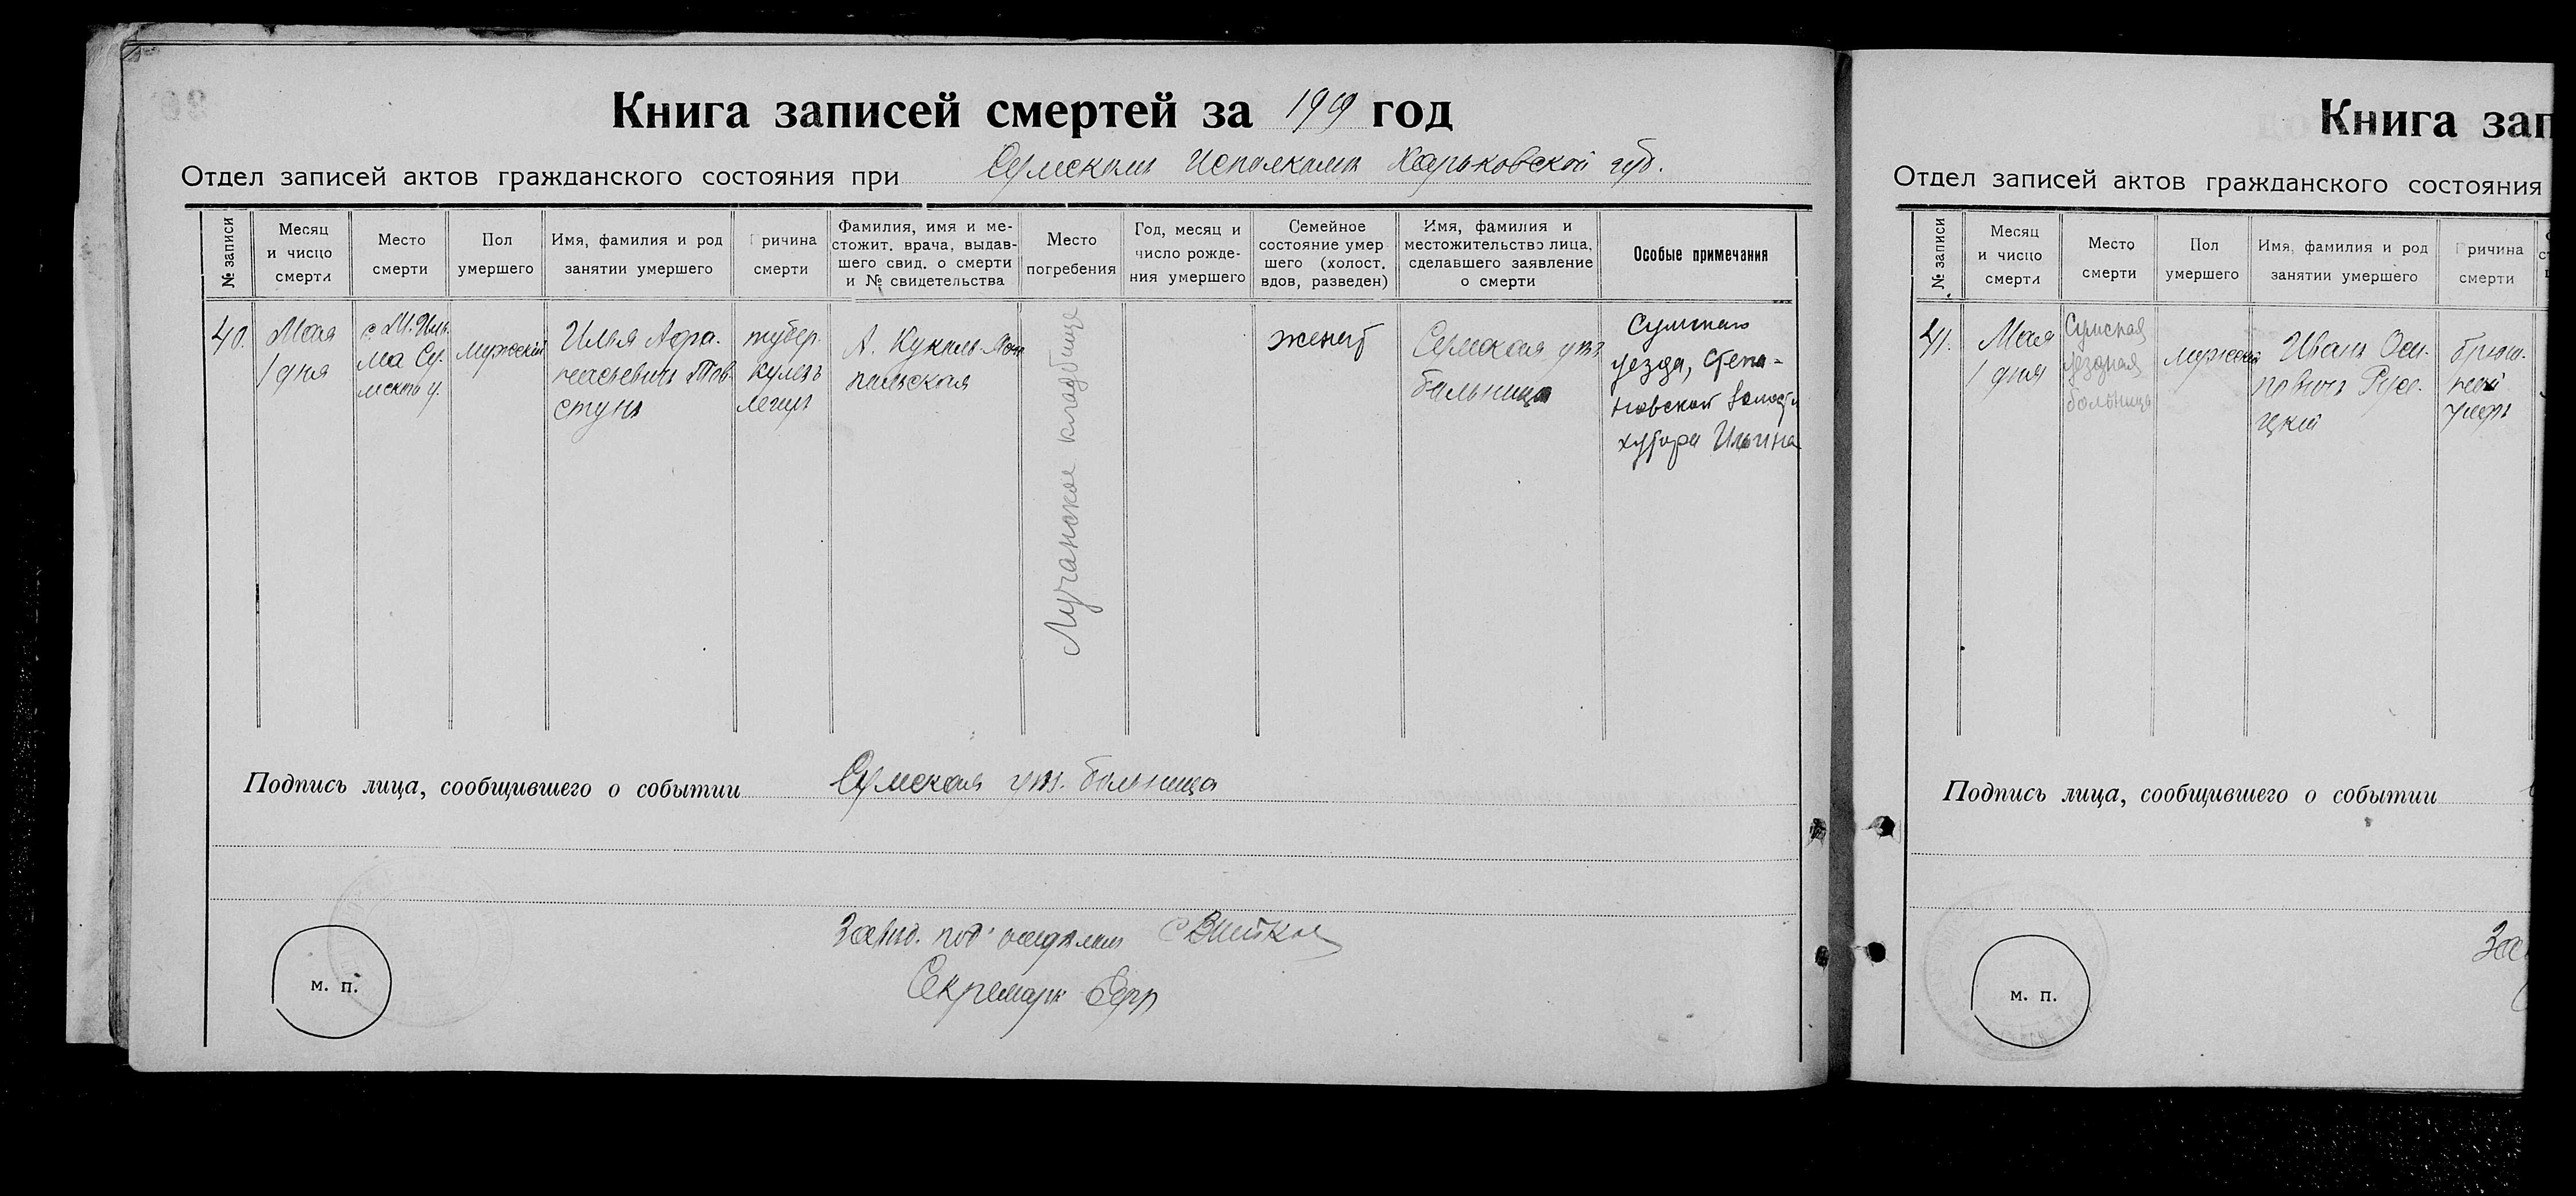 Книга записей смертей за 1919 год
Отдел записей актов гражданского состояния при Сумском Исполкоме Харьковской губ.
№ записи
Месяц
и число
смерти
Место
смерти
Пол
умершего
Имя, фамилия и род
занятии умершего
Причина
смерти
Фамилия, имя и ме-
стожит. врача, выдав-
шего свид. о смерти
и № свидетельства
Место
погребения
Год, месяц и
число рожде-
ния умершего
Семейное
состояние умер
шего (холост,
вдов, разведен)
Имя, фамилия и
местожительство лица,
сделавшего заявление
о смерти
Особые примечания
40.
Мая
1 дня
Су-
мужской
Илья Афа-
насьевич Тов-
стун
тубер-
кулезъ
легих
А. Кукаль-
польская
Лучанское кладбище
женат
Сумская уез
больница
Сумскаго
уезда, Степа-
новской волости
хутора Ильина
Подпись лица, сообщившего о событии Сумская уез. больница
Завед. под'отделом
Секретарь
м. п.
Книга зап
Отдел записей актов гражданского состояния
№ записи
Месяц
и число
смерти
Место
смерти
Пол
умершего
Имя, фамилия и род
занятии умершего
Причина
смерти
41.
Мая
1 дня
Сумская
уездная
больница
мужской
Иванъ Оси-
повичъ
цкий
брюш-
ной
тифъ
Подпись лица, сообщившего о событии
м. п.